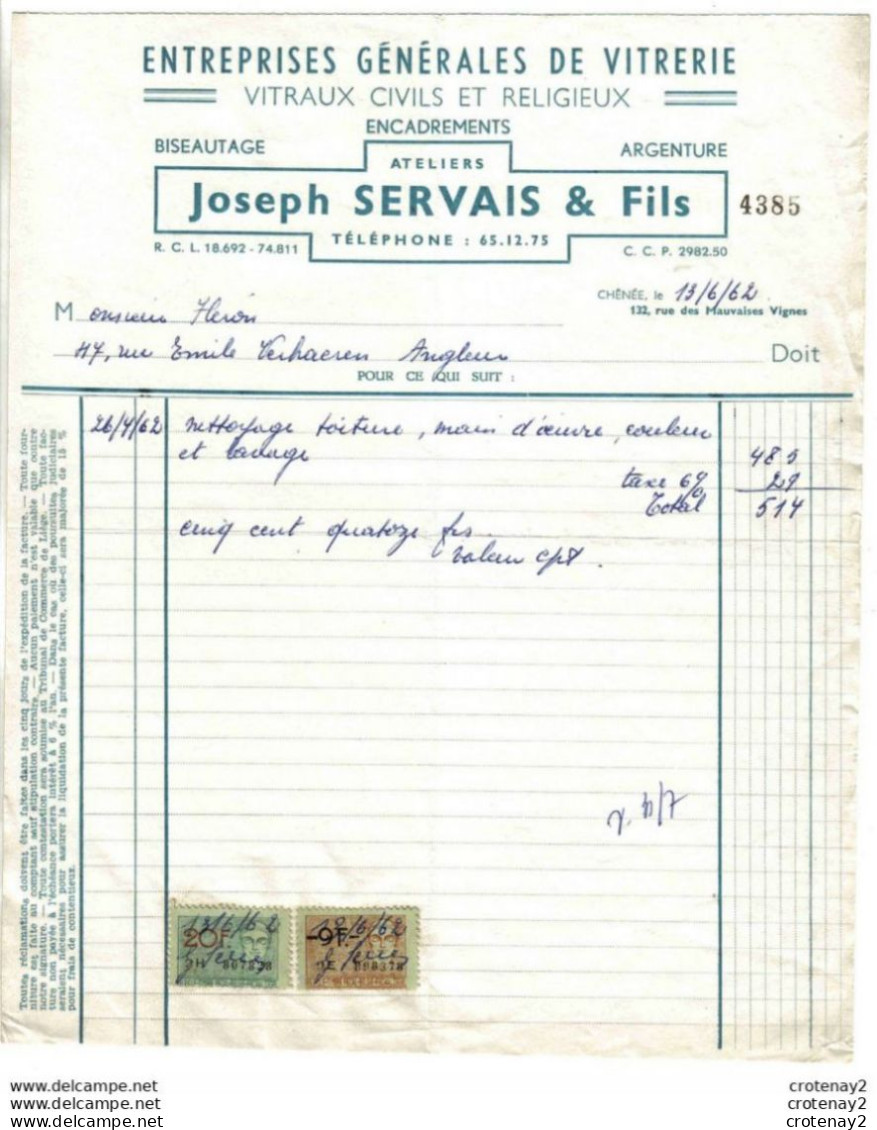 ENTREPRISES GÉNÉRALES DE VITRERIE
VITRAUX CIVILS ET RELIGIEUX
ENCADREMENTS
BISEAUTAGE
ARGENTURE
ATELIERS
Joseph SERVAIS & Fils
4385
TÉLÉPHONE : 65.12.75
R. C. L. 18.692 - 74.811
C. C. P. 2982.50
CHÊNÉE, le 13/6/62
132, rue des Mauvaises Vignes
Monsieur
47, rue Emile Verhaeren Angleur
Doit
POUR CE QUI SUIT :
26/4/62 nettoyage toiture, main d'œuvre, couleur
et lavage 485
taxe 6% 29
Total 514
cinq cent quatorze frs
valeur cpt.
Toutes réclamations doivent être faites dans les cinq jours de l'expédition de la facture. — Toute four-
niture est faite au comptant sauf stipulation contraire. — Aucun paiement n'est valable que contre
notre signature. — Toute contestation sera soumise au Tribunal de Commerce de Liége. — Toute fac-
ture non payée à l'échéance portera intérêt à 6 % l'an. — Dans le cas où des poursuites judiciaires
seraient nécessaires pour assurer la liquidation de la présente facture, celle-ci sera majorée de 15 %
pour frais de contentieux.
13/6/62
20F.
-9F.-
www.delcampe.net
www.delcampe.net
www.delcampe.net
crotenay2
crotenay2
crotenay2